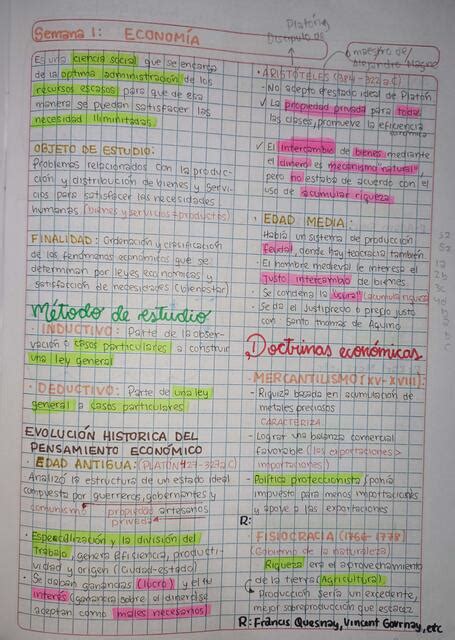 Semana 1: ECONOMÍA
Es una ciencia social que se encarga
de la optima administración de los
recursos escasos para que de esa
manera se puedan satisfacer las
necesidad ilimitadas.
OBJETO DE ESTUDIO:
Problemas relacionados con la produc-
ción y distribución de bienes y servi-
cios para satisfacer las necesidades
humanas (bienes y servicios=productos)
FINALIDAD: Ordenación y clasificación
de los fenómenos económicos que se
determinan por leyes económicas y
satisfacción de necesidades (bienestar)
Método de estudio
· INDUCTIVO: Parte de la obser-
vación o casos particulares a construir
una ley general
· DEDUCTIVO: Parte de una ley
general a casos particulares
EVOLUCIÓN HISTORICA DEL
PENSAMIENTO ECONÓMICO
· EDAD ANTIGUA: (PLATÓN 427-327a.C)
Analizó la estructura de un estado ideal
compuesta por guerreros, gobernantes y
comunismo propiedad artesanos
privada
· Especialización y la división del
Trabajo, genera eficiencia, producti-
vidad y origen (Ciudad-estado)
· Se daban ganancias (lucro) y el
interés (ganancia sobre el dinero) se
aceptan como males necesarios)
Platón
Discipulo de
maestro de
Alejandro Magno
· ARISTÓTELES (384-322 a.C)
- No acepto el estado ideal de Platón
✓ La propiedad privada para todas
las clases, promueve la eficiencia
económica
✓ El intercambio de bienes mediante
el dinero es mecanismo natural",
pero no estaba de acuerdo con el
uso de acumular riqueza
· EDAD MEDIA:
Había un sistema de producción
feudal, donde hay teocracia también
· El hombre medieval le interesa el
justo intercambio de bienes
· Se condena la usura" (acumula riqueza
· Se da el Justiprecio o precio justo
con Santo Thomas de Aquino
Doctrinas económicas
- MERCANTILISMO (XV-XVIII):
- Riquiza basada en acumulación de
metales preciosos
CARACTERIZA
- Lograr una balanza comercial
favorable (las exportaciones >
importaciones)
- Política proteccionista (ponía
impuesto para menos importaciones
y apoye a las exportaciones
R:
FISIOCRACIA (1756-1778)
(Gobierno de la naturaleza)
Riqueza era el aprovechamiento
de la tierra (Agricultura)
· Producción sería un excedente,
mejor sobreproducción que escasez
R: Francis Quesnay, Vincent Gournay, etc